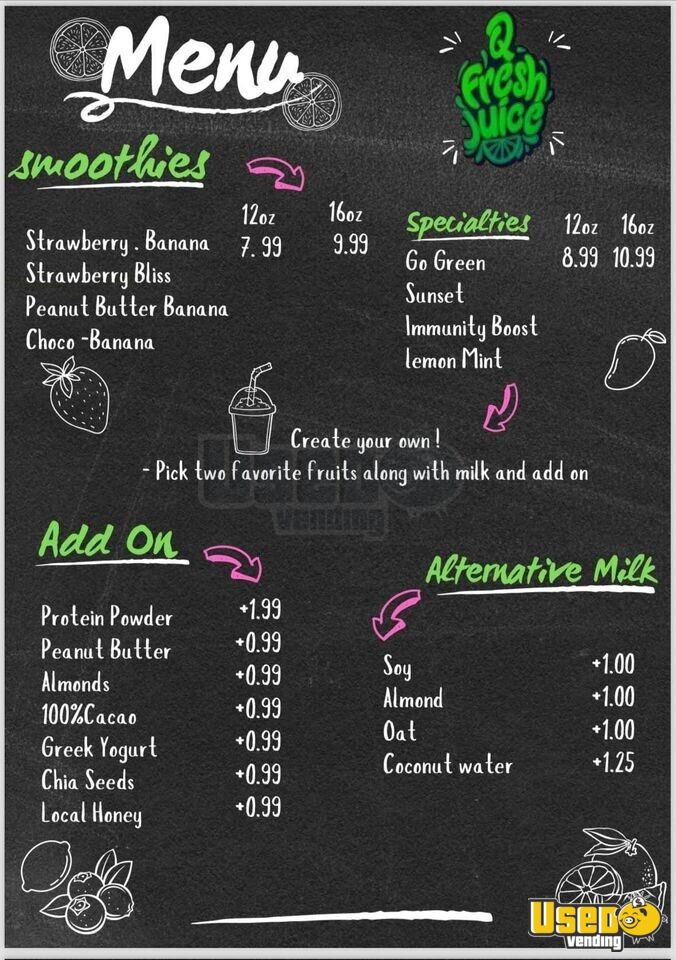 Menu
Q
Fresh
Juice
smoothies
12oz 16oz
Strawberry . Banana 7.99 9.99
Strawberry Bliss
Peanut Butter Banana
Choco -Banana
Specialties 12oz 16oz
Go Green 8.99 10.99
Sunset
Immunity Boost
lemon Mint
Create your own !
- Pick two favorite fruits along with milk and add on
Used
vending
Add On
Protein Powder +1.99
Peanut Butter +0.99
Almonds +0.99
100%Cacao +0.99
Greek Yogurt +0.99
Chia Seeds +0.99
Local Honey +0.99
Alternative Milk
Soy +1.00
Almond +1.00
Oat +1.00
Coconut water +1.25
Used
vending